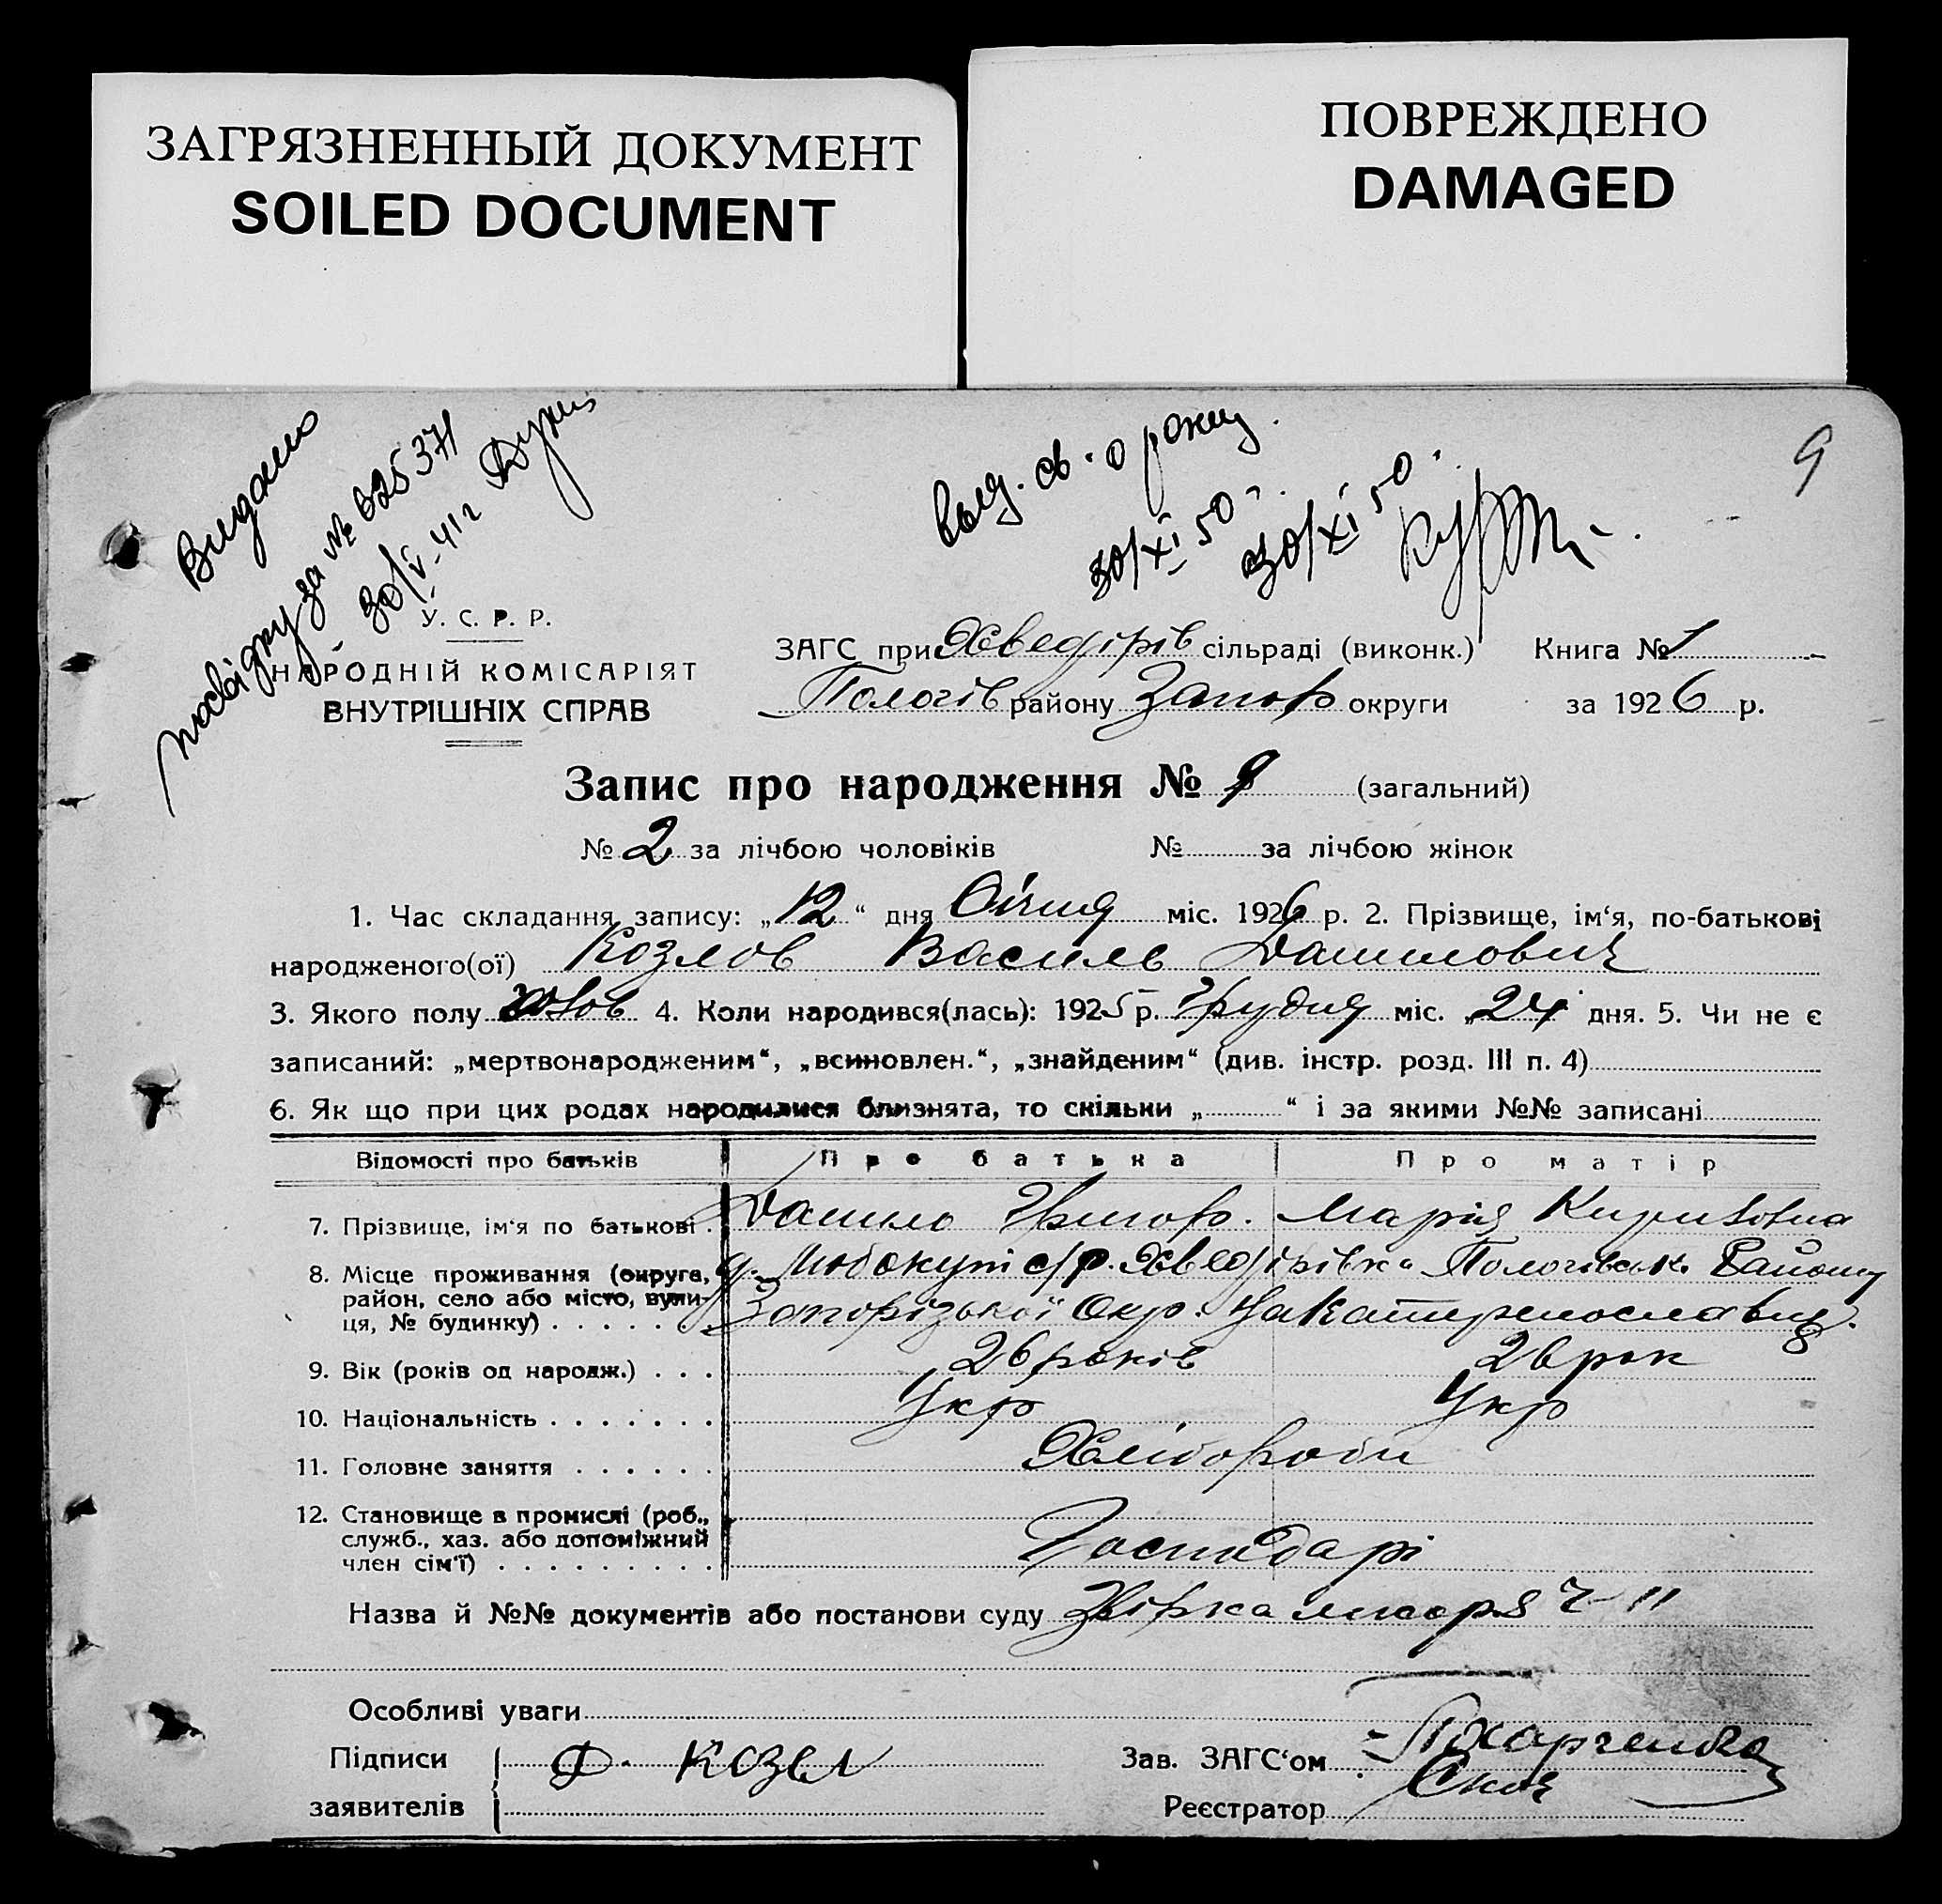 ЗАГРЯЗНЕННЫЙ ДОКУМЕНТ
SOILED DOCUMENT
ПОВРЕЖДЕНО
DAMAGED
9
Видано
посвідку за № 625371
30/V-41 г
выд. св. о рожд.
30/XI 50 г.
30/XI 50.
У. С. Р. Р.
НАРОДНІЙ КОМІСАРІЯТ
ВНУТРІШНІХ СПРАВ
ЗАГС при Хведірів сільраді (виконк.) Книга № 1
Пологів району Запор округи за 1926 р.
Запис про народження № 9 (загальний)
№ 2 за лічбою чоловіків № за лічбою жінок
1. Час складання запису: „12“ дня Січня міс. 1926 р. 2. Прізвище, ім‘я, по-батькові
народженого(ої) Козлов Василь Данилович
3. Якого полу чолов 4. Коли народився(лась): 1925 р. Грудня міс. „24 дня. 5. Чи не є
записаний: „мертвонародженим“, „всиновлен.“, „знайденим“ (див. інстр. розд. III п. 4)
6. Як що при цих родах народилися близнята, то скільки „ “ і за якими №№ записані
Відомості про батьків Про батька Про матір
7. Прізвище, ім‘я по батькові . Данило Григор. Марія Кириловна
8. Місце проживання (округа, с/р. Хведірівка Пологівськ. Району
район, село або місто, вули- Запорізької Окр. Катеринославщ.
ця, № будинку) . . . . . .
9. Вік (років од народж.) . . . 26 років 26 рок
10. Національність . . . . . . . Укр Укр
11. Головне заняття . . . . . . Хлібороби
12. Становище в промислі (роб.,
служб., хаз. або допоміжний Господарі
член сім‘ї) . . . . . . . . .
Назва й №№ документів або постанови суду
Особливі уваги
Підписи Д. Козел Зав. ЗАГС‘ом Харченко
заявителів Реєстратор